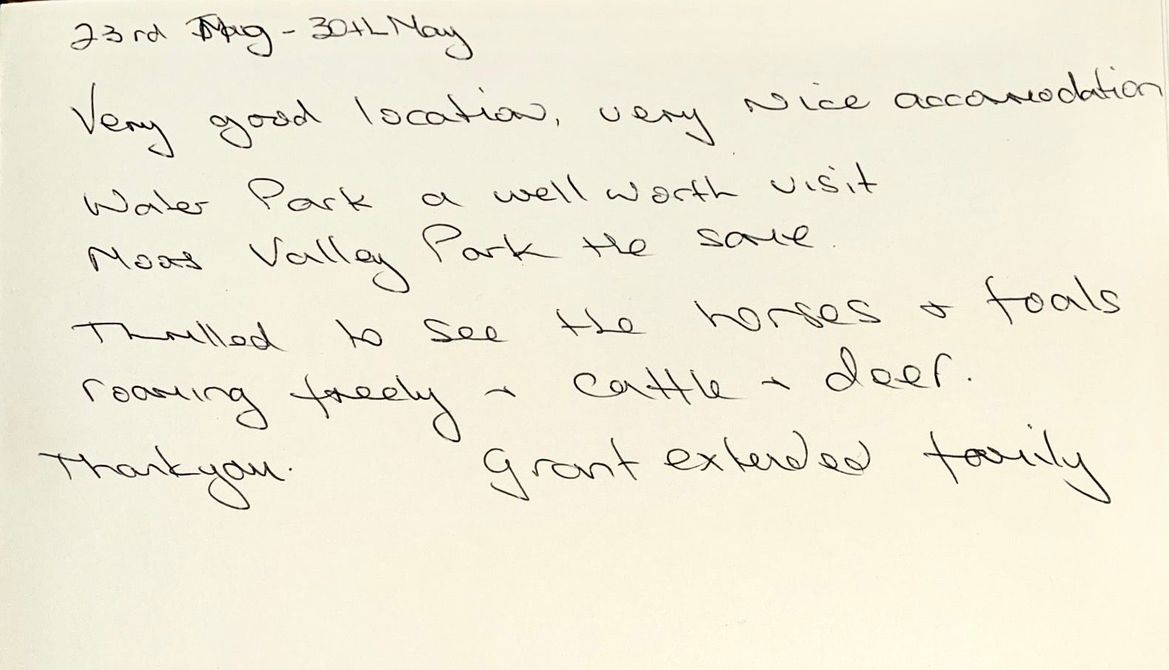 23rd May - 30th May
Very good location, very Nice accomodation
Water Park a well worth visit
Moors Valley Park the same.
Thrilled to see the horses + foals
roaming freely + cattle + deer.
Thankyou. Grant extended family